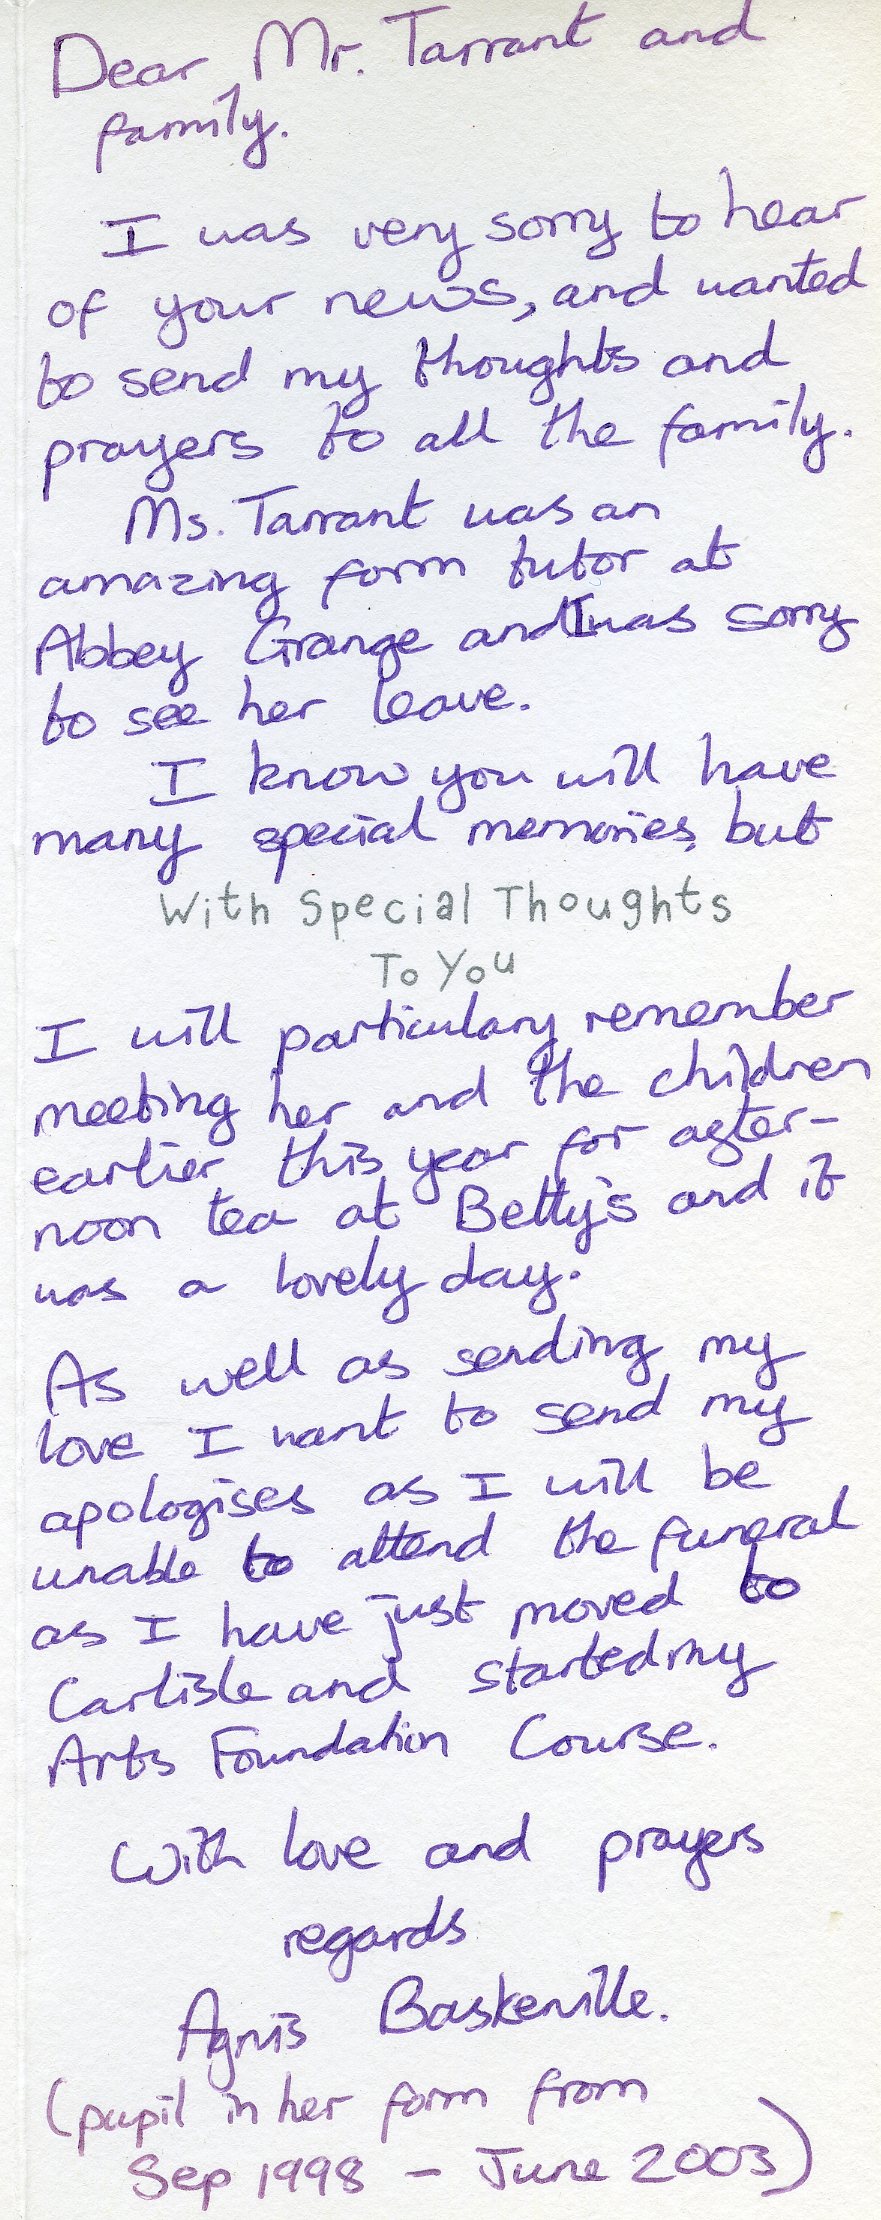 Dear Mr. Tarrant and
family.
I was very sorry to hear
of your news, and wanted
to send my thoughts and
prayers to all the family.
Ms. Tarrant was an
amazing form tutor at
Abbey Grange and I was sorry
to see her leave.
I know you will have
many special memories, but
With Special Thoughts
To You
I will particulary remember
meeting her and the children
earlier this year for after-
noon tea at Betty's and it
was a lovely day.
As well as sending my
love I want to send my
apologises as I will be
unable to attend the funeral
as I have just moved to
Carlisle and started my
Arts Foundation Course.
With love and prayers
regards
Agnis Baskerville.
(pupil in her form from
Sep 1998 - June 2003)